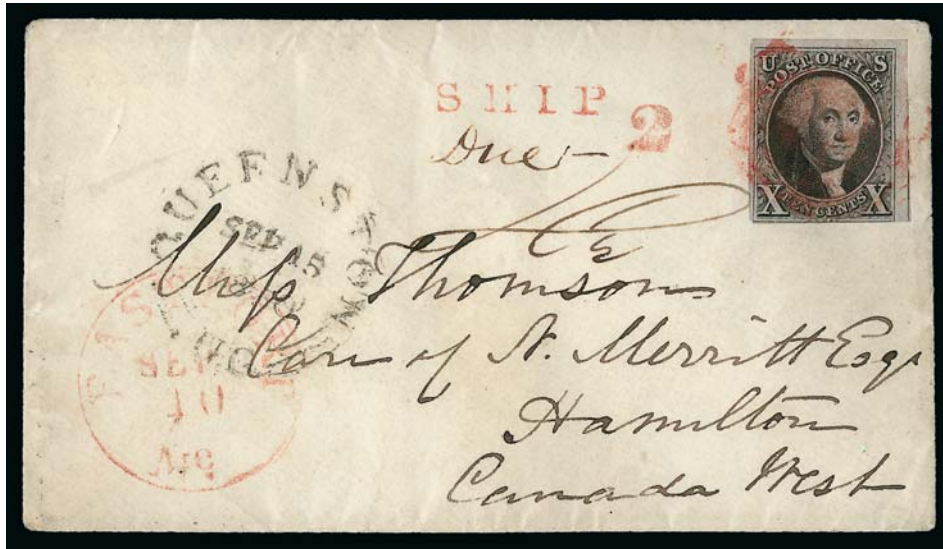 U S
POST OFFICE
X TEN CENTS X
SHIP
2
Due
QUEENSTON
SEP 15
EASTPORT
SEP
10
Me
Miss Thomson
Care of N. Merritt Esqr
Hamilton
Canada West